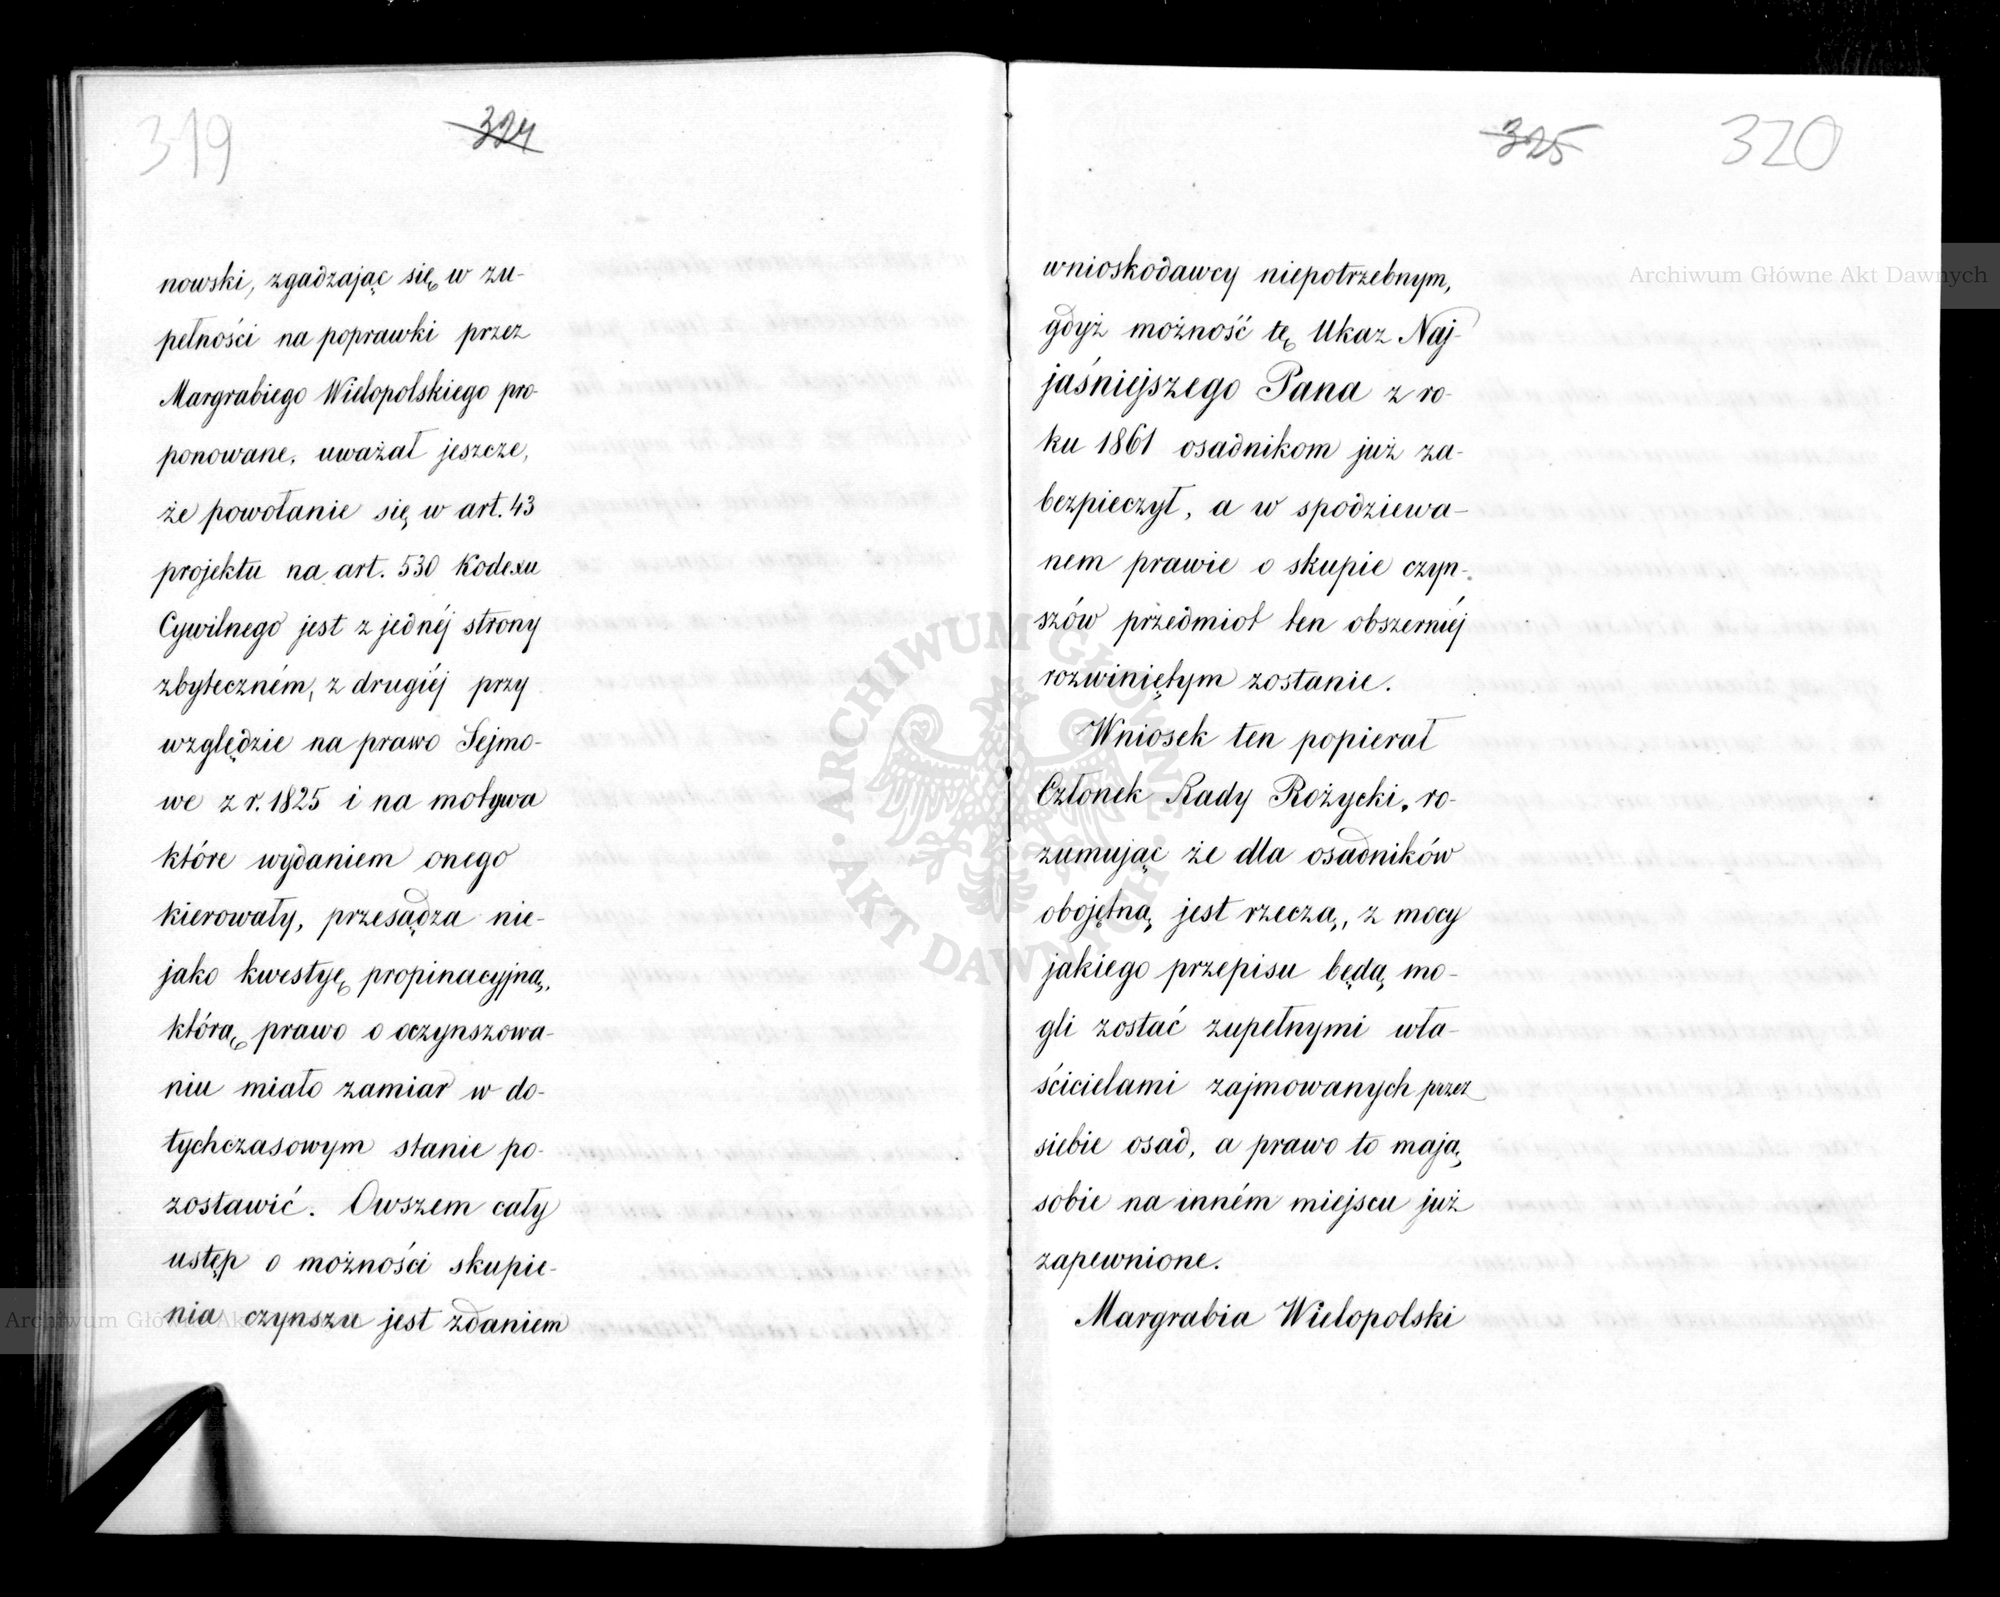 319
324
nowski, zgadzając się w zu-
pełności na poprawki przez
Margrabiego Wielopolskiego pro-
ponowane, uważał jeszcze,
że powołanie się w art. 43
projektu na art. 530 Kodexu
Cywilnego jest z jednéj strony
zbyteczném, z drugiéj przy
względzie na prawo Sejmo-
we z r. 1825 i na motywa
które wydaniem onego
kierowały, przesądza nie-
jako kwestyę propinacyjną,
którą prawo o oczynszowa-
niu miało zamiar w do-
tychczasowym stanie po-
zostawić. Owszem cały
ustęp o możności skupie-
nia czynszu jest zdaniem
325
320
wnioskodawcy niepotrzebnym,
gdyż możność tę Ukaz Naj-
jaśniejszego Pana z ro-
ku 1861 osadnikom już za-
bezpieczył, a w spodziewa-
nem prawie o skupie czyn-
szów przedmiot ten obszerniéj
rozwiniętym zostanie.
Wniosek ten popierał
Członek Rady Rożycki, ro-
zumując że dla osadników
obojętną jest rzeczą, z mocy
jakiego przepisu będą mo-
gli zostać zupełnymi wła-
ścicielami zajmowanych przez
siebie osad, a prawo to mają
sobie na inném miejscu już
zapewnione.
Margrabia Wielopolski
Archiwum Główne Akt Dawnych
ARCHIWUM GŁÓWNE
AKT DAWNYCH
Archiwum Główne Ak